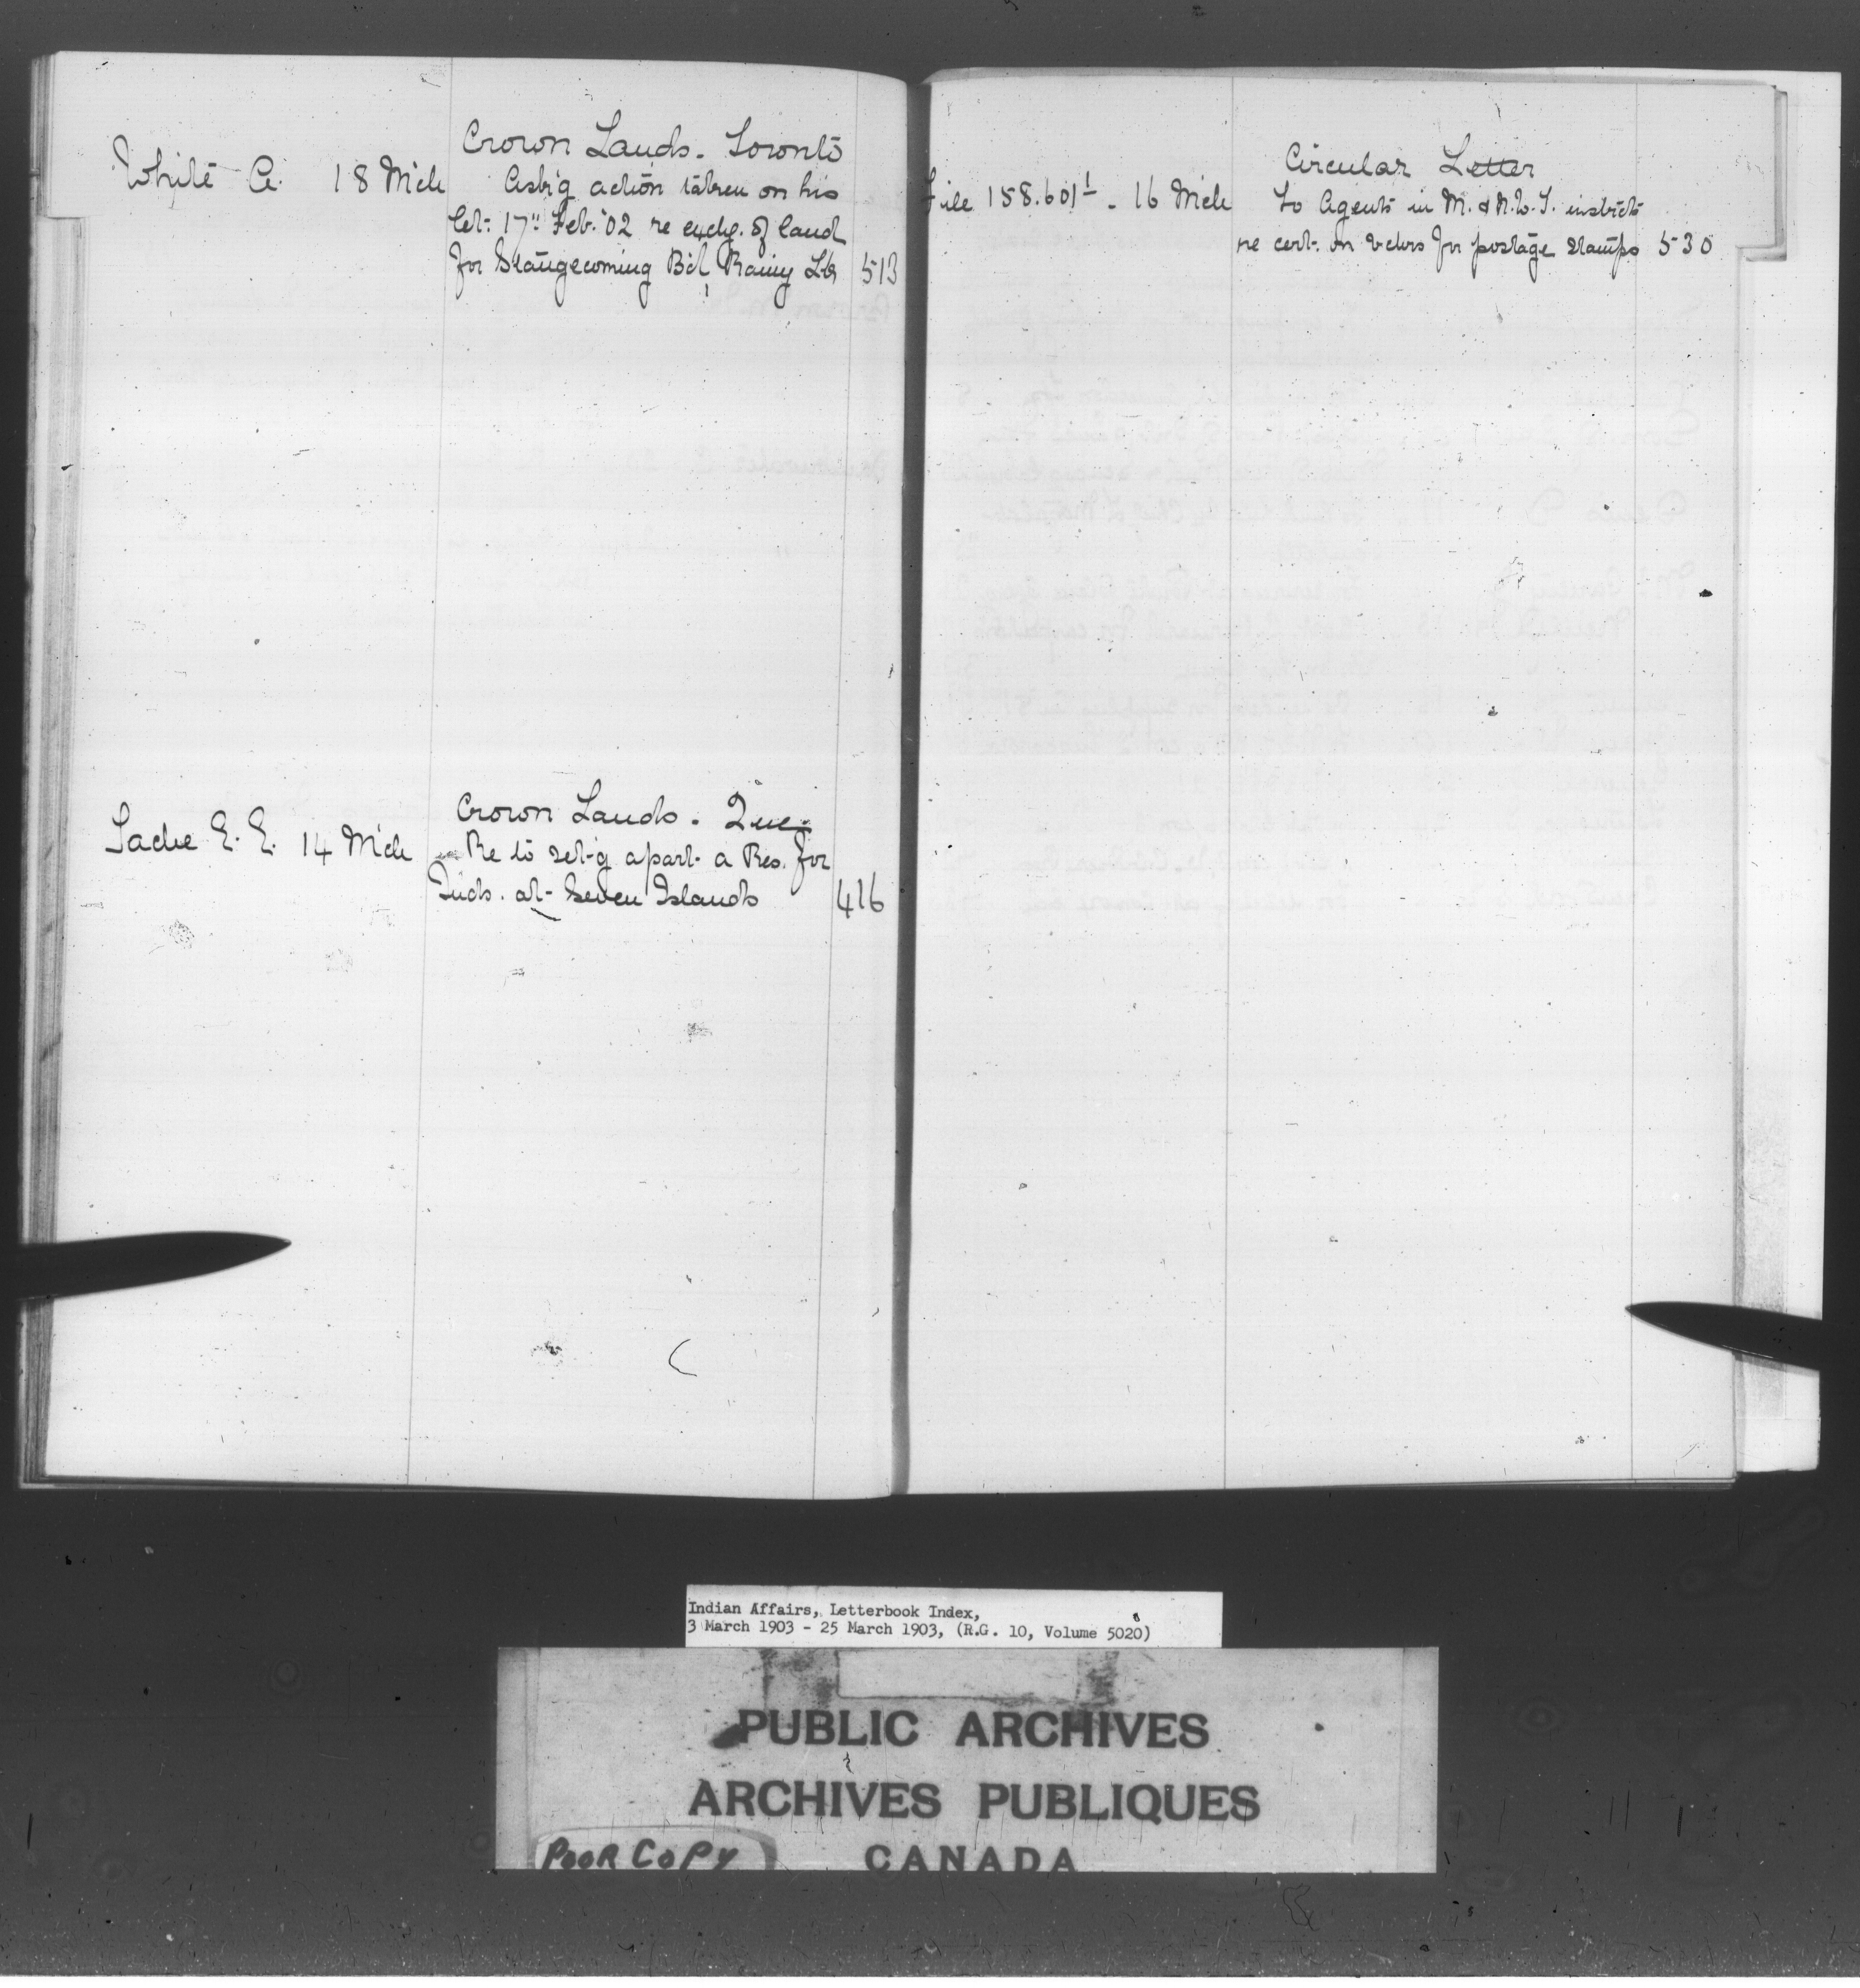 Crown Lands. Toronto
White A. 18 Mch Ask'g action taken on his
let. 17" Feb. '02 re exchg. of land
for Stangecoming Bd, Rainy Lk 513
Crown Lands. Que.
Tache E. E. 14 Mch Re to set-g apart a Res. for
Inds. at Seven Islands 416
Circular Letter
File 158.601-1 . 16 Mch To Agents in M. & N.W.T. instrcts
re cert. on vchrs for postage stamps 530
Indian Affairs, Letterbook Index,
3 March 1903 - 25 March 1903, (R.G. 10, Volume 5020)
PUBLIC ARCHIVES
ARCHIVES PUBLIQUES
POOR COPY CANADA